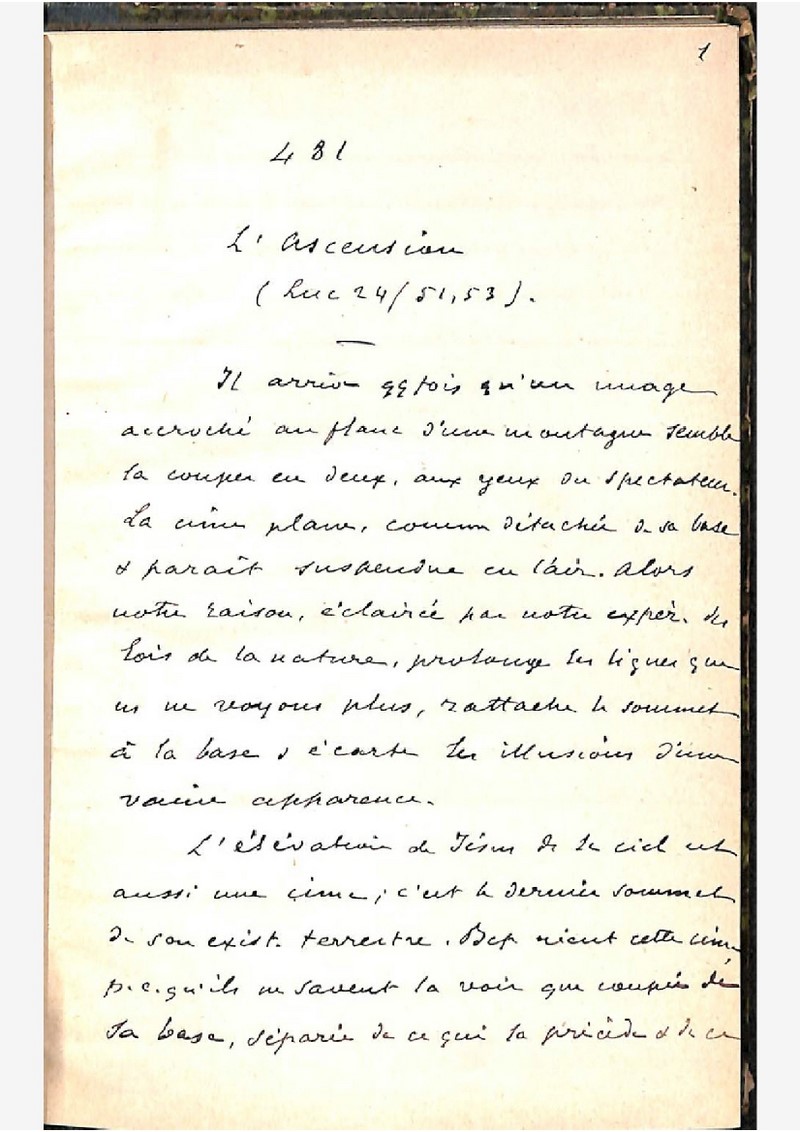 1
481
L'Ascension
(Luc 24/51,53).
Il arrive qqfois qu'un nuage
accroché au flanc d'une montagne semble
la couper en deux, aux yeux du spectateur.
La cime plane, comme détachée de sa base
& paraît suspendue en l'air. Alors
notre raison, éclairée par notre expér. des
lois de la nature, prolonge les lignes que
ns ne voyons plus, rattache le sommet
à la base & écarte les illusions d'une
vaine apparence.
L'élévation de Jésus ds le ciel est
aussi une cime ; c'est le dernier sommet
de son exist. terrestre. Bcp nient cette cime
p.c.qu'ils ne savent la voir que coupée de
sa base, séparée de ce qui la précède & de ce